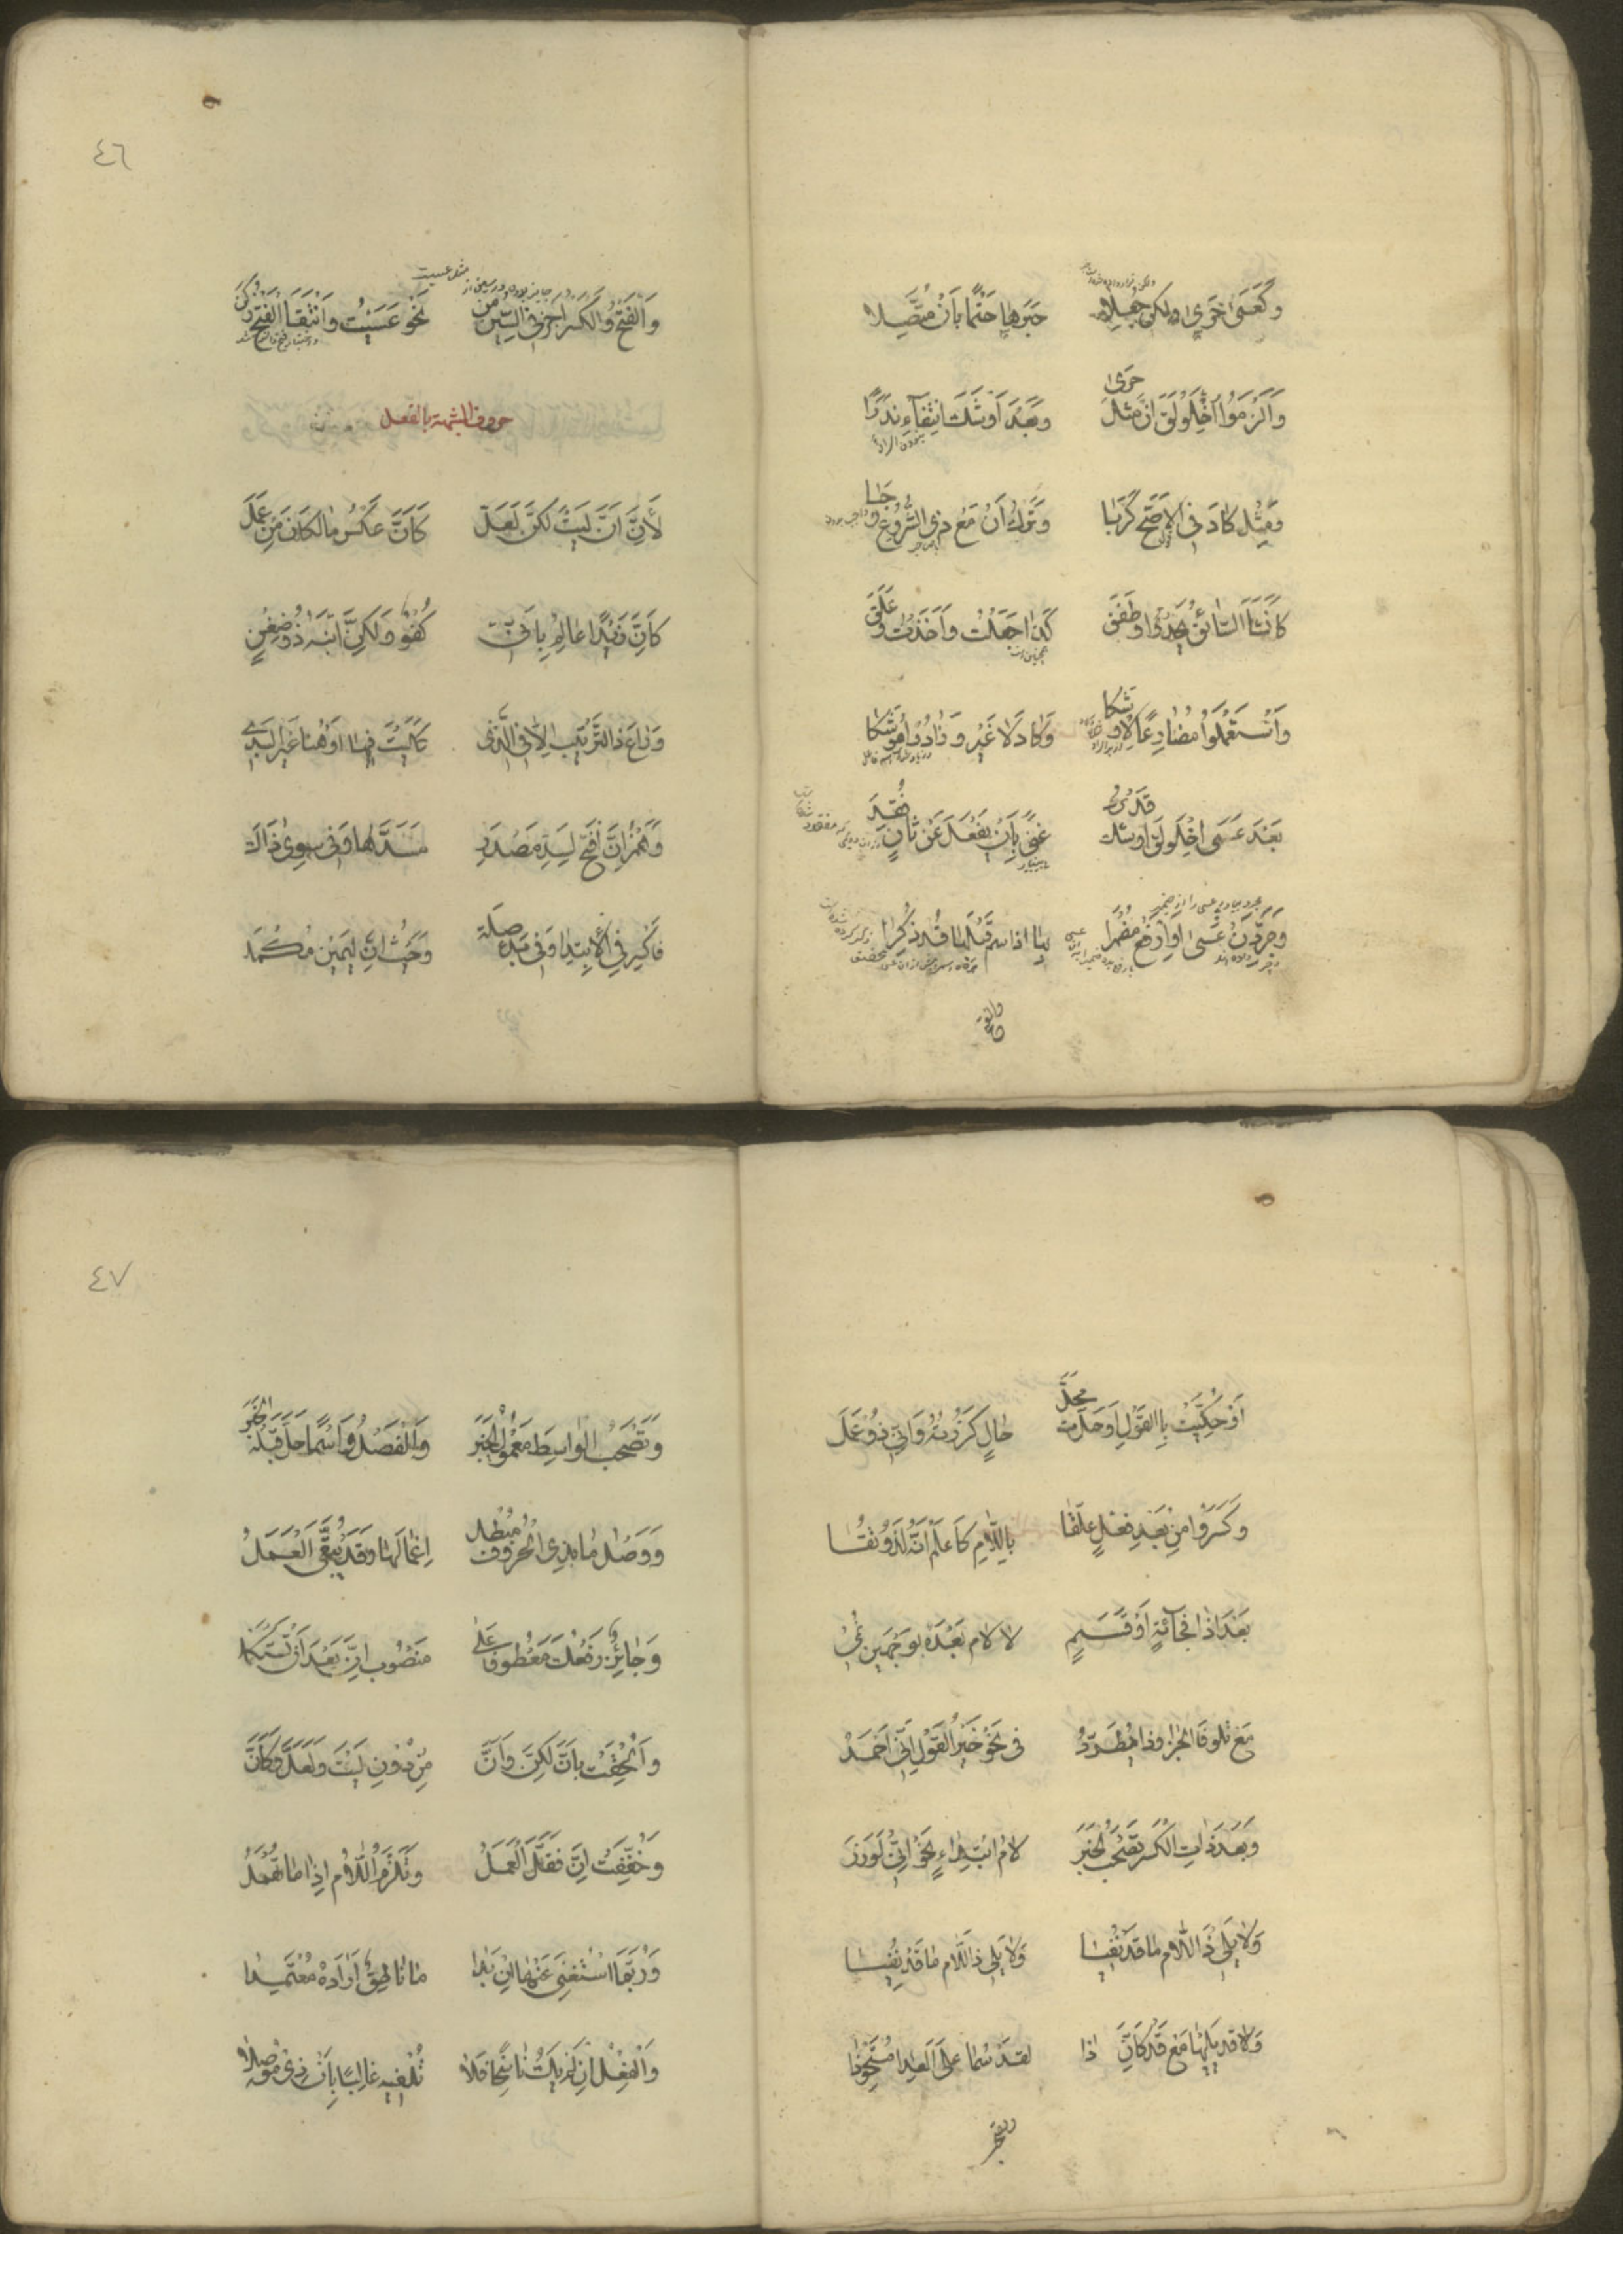 وَكَعَسَى حَرَى وَلكِن جُعِلا خَبَرُها حَتْمًا بِأَنْ مُتَّصِلا
وَأَلْزَمُوا اخْلَوْلَقَ أَنْ مِثْلَ حَرَى وَبَعْدَ أَوْشَكَ انْتِفَاءِ نَدُرَا
وَمِثْلُ كَادَ فِي الأَصَحِّ كَرَبَا وَتَرْكُ أَنْ مَعْ ذِي الشُّرُوعِ وَجَبَا
كَأَنْشَأَ السَّائِقُ يَحْدُو وَطَفِقْ كَذَا جَعَلْتُ وَأَخَذْتُ وَعَلِقْ
وَاسْتَعْمَلُوا مُضَارِعًا لِأَوْشَكَا وَكَادَ لَا غَيْرُ وَزَادُوا مُوشِكَا
بَعْدَ عَسَى اخْلَوْلَقَ أَوْشَكْ قَدْ يُرَدْ غِنًى بِأَنْ يَفْعَلَ عَنْ ثَانٍ فُقِدْ
وَجَرِّدَنْ عَسَى أَوِ ارْفَعْ مُضْمَرَا بِهَا إِذَا اسْمٌ قَبْلَهَا قَدْ ذُكِرَا
والفتح
٤٦
وَالْفَتْحَ وَالْكَسْرَ أَجِزْ فِي السِّينِ مِنْ نَحْوِ عَسَيْتُ وَانْتِقَا الْفَتْحِ زُكِنْ
حروف المشبهة بالفعل
لِأَنَّ أَنَّ لَيْتَ لكِنَّ لَعَلّ كَأَنَّ عَكْسُ مَا لِكَانَ مِنْ عَمَلْ
كَأَنَّ زَيْدًا عَالِمٌ بِأَنِّي كُفْوٌ وَلكِنَّ ابْنَهُ ذُو ضِغْنٍ
وَرَاعِ ذَا التَّرْتِيبَ إِلَّا فِي الَّذِي كَلَيْتَ فِيهَا أَوْ هُنَا غَيْرَ الْبَذِي
وَهَمْزَ إِنَّ افْتَحْ لِسَدِّ مَصْدَرِ مَسَدَّهَا وَفِي سِوَى ذَاكَ
فَاكْسِرْ فِي الْابْتِدَا وَفِي بَدْءِ صِلَة وَحَيْثُ إِنَّ لِيَمِينٍ مُكْمِلَه
أَوْ حُكِيَتْ بِالْقَوْلِ أَوْ حَلَّتْ مَحَلَّ حَالٍ كَزُرْتُهُ وَإِنِّي ذُو عَمَلْ
وَكَسَرُوا مِنْ بَعْدِ فِعْلٍ عُلِّقَا بِاللَّامِ كَاعْلَمْ إِنَّهُ لَذُو تُقَا
بَعْدَ إِذَا فُجَآءَةٍ أَوْ قَسَمٍ لَا لَامَ بَعْدَهُ بِوَجْهَيْنِ نُمِي
مَعْ تِلْوِ فَا الْجَزَا وَذَا يَطَّرِدُ فِي نَحْوِ خَيْرُ الْقَوْلِ إِنِّي أَحْمَدُ
وَبَعْدَ ذَاتِ الْكَسْرِ تَصْحَبُ الْخَبَرَ لَامُ ابْتِدَاءٍ نَحْوُ إِنِّي لَوَزَرَ
وَلَا يَلِي ذَا اللَّامَ مَا قَدْ نُفِيَا وَلَا يَلِي ذَا اللَّامَ مَا قَدْ نُفِيَا
وَلَا قَدْ يَلِيهَا مَعَ قَدْ كَإِنَّ ذَا لَقَدْ سَمَا عَلَى الْعِدَا مُسْتَحْوِذَا
وتصحب
٤٧
وَتَصْحَبُ الْوَاسِطَ مَعْمُولَ الْخَبَرْ وَالْفَصْلَ وَاسْمًا حَلَّ قَبْلَهُ الْخَبَرْ
وَوَصْلُ مَا بِذِي الْحُرُوفِ مُبْطِلُ إِعْمَالَهَا وَقَدْ يُبَقَّى الْعَمَلُ
وَجَائِزٌ رَفْعُكَ مَعْطُوفًا عَلَى مَنْصُوبِ إِنَّ بَعْدَ أَنْ تَسْتَكْمِلَا
وَأُلْحِقَتْ بِإِنَّ لكِنَّ وَأَنَّ مِنْ دُونِ لَيْتَ وَلَعَلَّ وَكَأَنَّ
وَخُفِّفَتْ إِنَّ فَقَلَّ الْعَمَلُ وَتَلْزَمُ اللَّامُ إِذَا مَا تُهْمَلُ
وَرُبَّمَا اسْتُغْنِيَ عَنْهَا إِنْ بَدَا مَا نَاطِقٌ أَرَادَهُ مُعْتَمِدَا
وَالْفِعْلُ إِنْ لَمْ يَكُ نَاسِخًا فَلَا تُلْفِيهِ غَالِبًا بِإِنْ ذِي مُوصَلَا